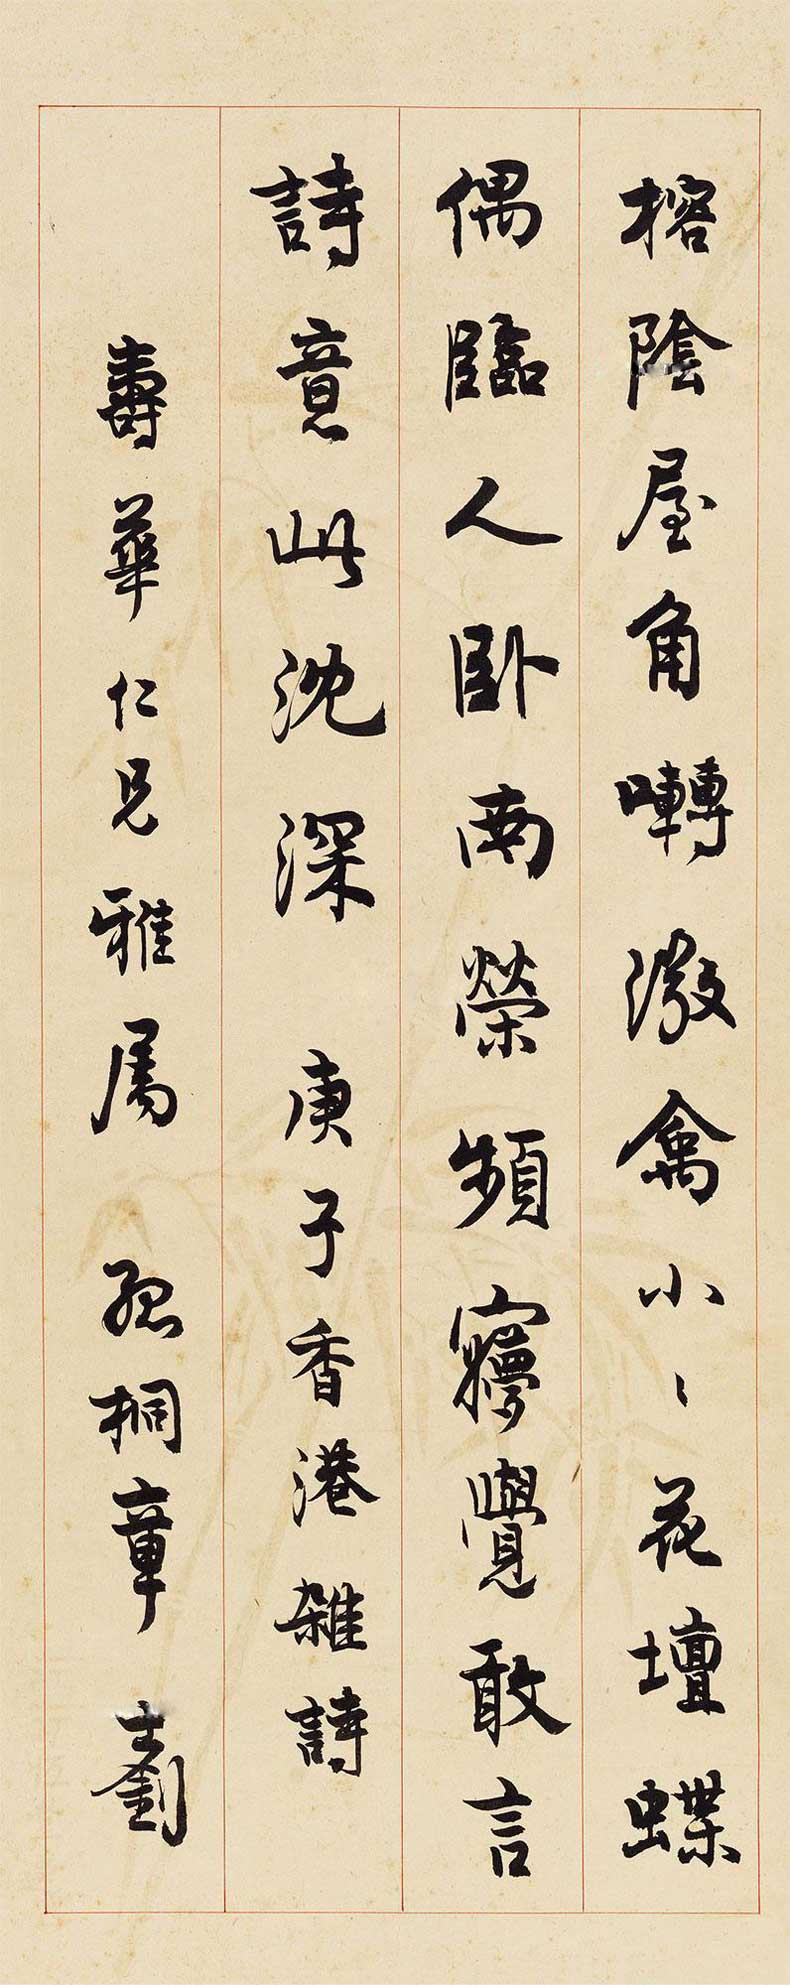 榕陰屋角囀微禽小〻花壇蝶
偶臨人臥南榮頻寱覺敢言
詩意此沈深　庚子香港雜詩
壽華仁兄雅屬　孤桐章士釗